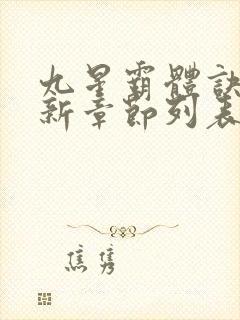 九星霸體訣
新章節列表
焦雋